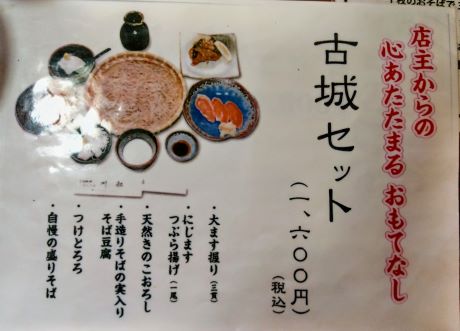 店主からの
心あたたまる おもてなし
古城セット
(一、六〇〇円)
(税込)
・大ます握り(三貫)
・にじます
つぶら揚げ(一尾)
・天然きのこおろし
・手造りそばの実入り
そば豆腐
・つけとろろ
・自慢の盛りそば